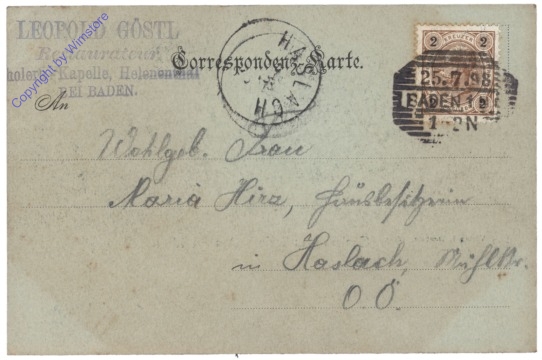 LEOPOLD GÖSTL
Restaurateur
Cholera-Kapelle, Helenenthal
BEI BADEN.
Copyright by Wimstore
Correspondenz-Karte.
HASLACH
KREUZER
2 2
25.7.98
BADEN 1
2
1-2N
An
Wohlgeb. Frau
Maria Hirz, Hausbesitzerin
in Haslach, Mühlkr.
O.Ö.